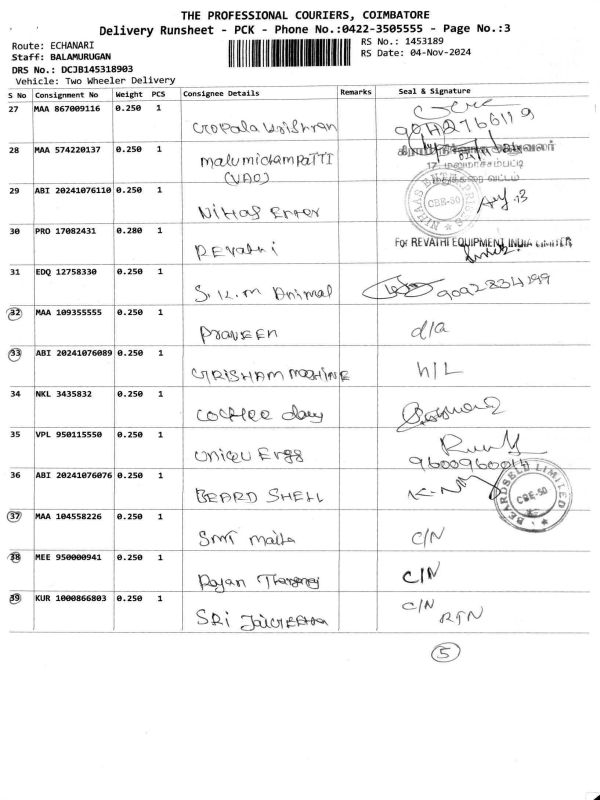 THE PROFESSIONAL COURIERS, COIMBATORE
Delivery Runsheet - PCK - Phone No.:0422-3505555 - Page No.:3
Route: ECHANARI
RS No.: 1453189
Staff: BALAMURUGAN
RS Date: 04-Nov-2024
DRS No.: DCJB145318903
Vehicle: Two Wheeler Delivery
S No Consignment No Weight PCS Consignee Details Remarks Seal & Signature
27 MAA 867009116 0.250 1
Gopala Krishnan
28 MAA 574220137 0.250 1
malumichampatti
(VAO)
29 ABI 20241076110 0.250 1
Nihas Enter
NIHAAS ENTERPRISES
CBE-50
30 PRO 17082431 0.280 1
Revathi
For REVATHI EQUIPMENT INDIA LIMITED
31 EDQ 12758330 0.250 1
S.K.M Animal
9092834199
32 MAA 109355555 0.250 1
Praveen d/a
33 ABI 20241076089 0.250 1
GRISHAM MACHINE H/L
34 NKL 3435832 0.250 1
35 VPL 950115550 0.250 1
9600960014
36 ABI 20241076076 0.250 1
BEARD SHELL
BEARDSELL LIMITED
CBE-50
37 MAA 104558226 0.250 1
C/N
38 MEE 950000941 0.250 1
Rajan C/N
39 KUR 1000866803 0.250 1
SRI C/N RTN
5